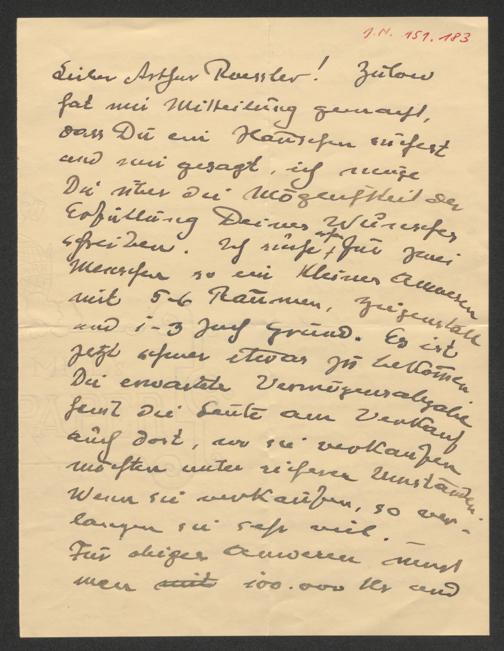 J.N. 151.183
Lieber Arthur Roessler! Zülow
hat mir Mitteilung gemacht,
dass Du ein Häuschen suchst
und mir gesagt, ich möge
Dir über die Möglichkeit der
Erfüllung Deines Wunsches
schreiben. Ich suche für zwei
Menschen so ein kleines Anwesen
mit 5-6 Räumen, Ziegenstall
und 1-3 Joch Grund. Es ist
jetzt schwer etwas zu bekommen.
Die erwartete Vermögensabgabe
hemt die Leute am Verkauf
auch dort, wo sie verkaufen
möchten unter sicheren Umständen.
Wenn sie verkaufen, so ver-
langen sie sehr viel.
Für obiges Anwesen muss
man mit 100.000 Kr und